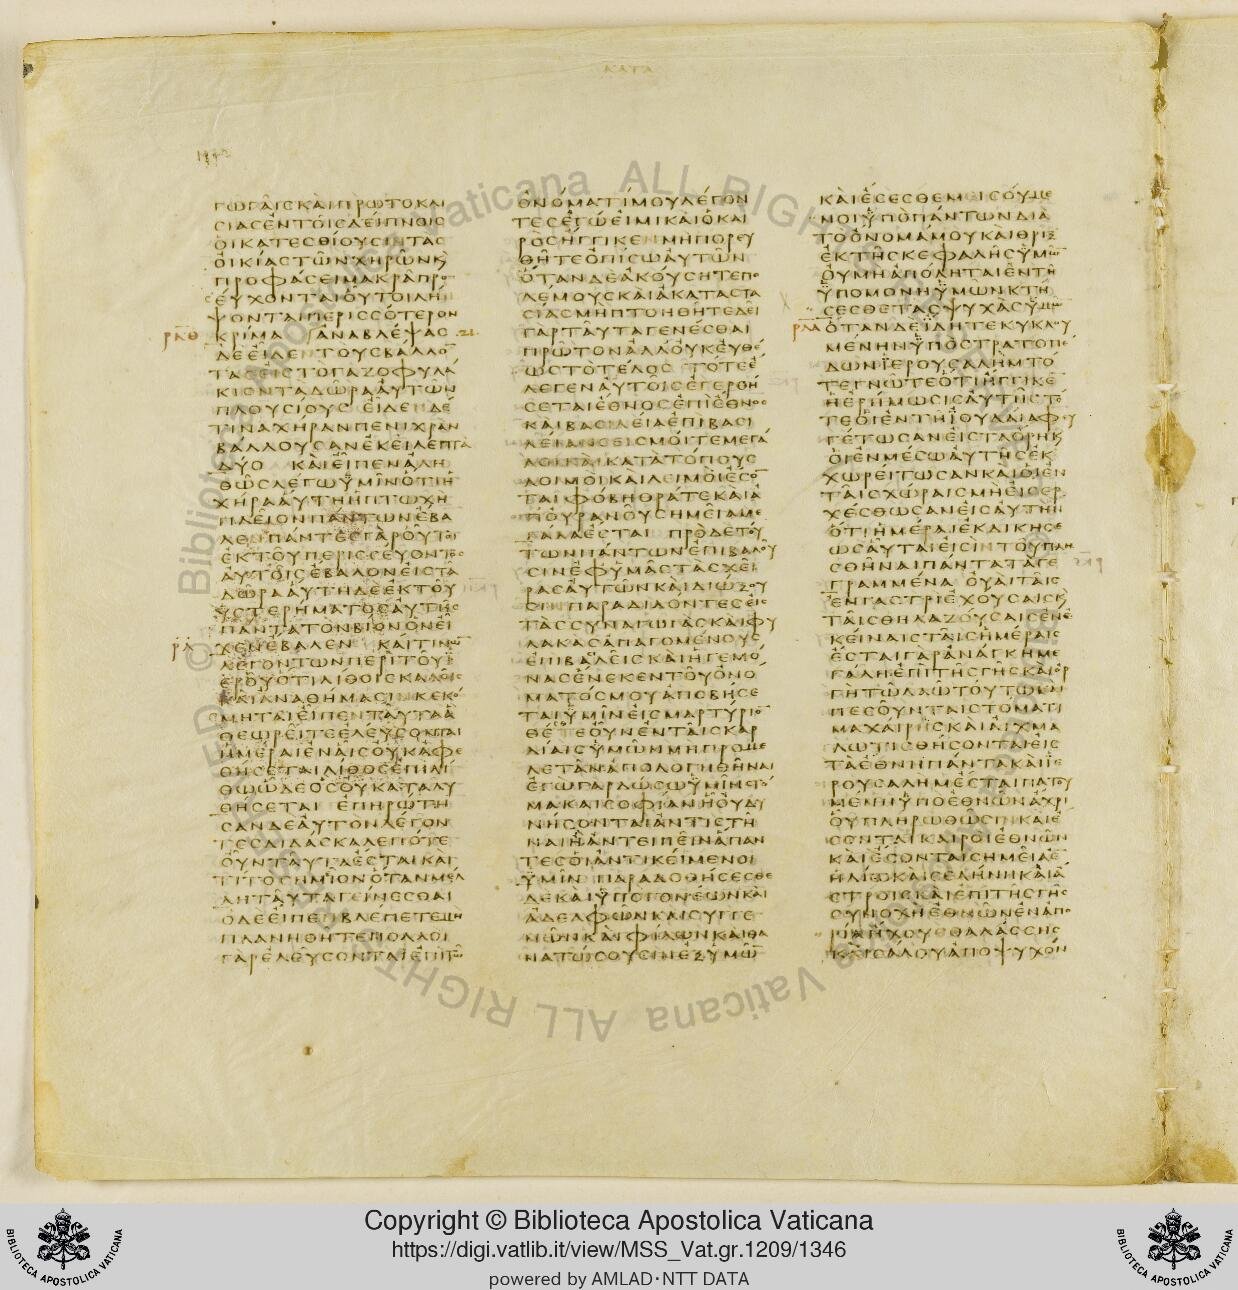 ΚΑΤΑ
ΓΩΓΑΙϹΚΑΙΠΡΩΤΟΚΛΙ
ϹΙΑϹΕΝΤΟΙϹΔΕΙΠΝΟΙϹ
ΟΙΚΑΤΕϹΘΙΟΥϹΙΝΤΑϹ
ΟΙΚΙΑϹΤΩΝΧΗΡΩΝΚ
ΠΡΟΦΑϹΕΙΜΑΚΡΑΠΡΟ
ϹΕΥΧΟΝΤΑΙΟΥΤΟΙΛΗ
ΨΟΝΤΑΙΠΕΡΙϹϹΟΤΕΡΟΝ
ΡΛΘ ΚΡΙΜΑ ΑΝΑΒΛΕΨΑϹ
ΔΕΕΙΔΕΝΤΟΥϹΒΑΛΛΟ̅
ΤΑϹΕΙϹΤΟΓΑΖΟΦΥΛΑ
ΚΙΟΝΤΑΔΩΡΑΑΥΤΩΝ
ΠΛΟΥϹΙΟΥϹ ΕΙΔΕΝΔΕ
ΤΙΝΑΧΗΡΑΝΠΕΝΙΧΡΑΝ
ΒΑΛΛΟΥϹΑΝΕΚΕΙΛΕΠΤΑ
ΔΥΟ ΚΑΙΕΙΠΕΝΑΛΗ
ΘΩϹΛΕΓΩΫΜΙΝΟΤΙΗ
ΧΗΡΑΑΥΤΗΗΠΤΩΧΗ
ΠΛΕΙΟΝΠΑΝΤΩΝΕΒΑ
ΛΕΝΠΑΝΤΕϹΓΑΡΟΥΤΟΙ
ΕΚΤΟΥΠΕΡΙϹϹΕΥΟΝΤΟϹ
ΑΥΤΟΙϹΕΒΑΛΟΝΕΙϹΤΑ
ΔΩΡΑΑΥΤΗΔΕΕΚΤΟΥ
ΫϹΤΕΡΗΜΑΤΟϹΑΥΤΗϹ
ΠΑΝΤΑΤΟΝΒΙΟΝΟΝΕΙ
ΡΜ ΧΕΝΕΒΑΛΕΝ ΚΑΙΤΙΝΩ̅
ΛΕΓΟΝΤΩΝΠΕΡΙΤΟΥΪ
ΕΡΟΥΟΤΙΛΙΘΟΙϹΚΑΛΟΙϹ
ΚΑΙΑΝΑΘΗΜΑϹΙΝΚΕΚΟ
ϹΜΗΤΑΙΕΙΠΕΝΤΑΥΤΑΑ
ΘΕΩΡΕΙΤΕΕΛΕΥϹΟΝΤΑΙ
ΗΜΕΡΑΙΕΝΑΙϹΟΥΚΑΦΕ
ΘΗϹΕΤΑΙΛΙΘΟϹΕΠΙΛΙ
ΘΩΩΔΕΟϹΟΥΚΑΤΑΛΥ
ΘΗϹΕΤΑΙ ΕΠΗΡΩΤΗ
ϹΑΝΔΕΑΥΤΟΝΛΕΓΟΝ
ΤΕϹΔΙΔΑϹΚΑΛΕΠΟΤΕ
ΟΥΝΤΑΥΤΑΕϹΤΑΙΚΑΙ
ΤΙΤΟϹΗΜΙΟΝΟΤΑΝΜΕΛ
ΛΗΤΑΥΤΑΓΕΙΝΕϹΘΑΙ
ΟΔΕΕΙΠΕΝΒΛΕΠΕΤΕΜΗ
ΠΛΑΝΗΘΗΤΕΠΟΛΛΟΙ
ΓΑΡΕΛΕΥϹΟΝΤΑΙΕΠΙΤΩ̅
ΟΝΟΜΑΤΙΜΟΥΛΕΓΟΝ
ΤΕϹΕΓΩΕΙΜΙΚΑΙΟΚΑΙ
ΡΟϹΗΓΓΙΚΕΝΜΗΠΟΡΕΥ
ΘΗΤΕΟΠΙϹΩΑΥΤΩΝ
ΟΤΑΝΔΕΑΚΟΥϹΗΤΕΠΟ
ΛΕΜΟΥϹΚΑΙΑΚΑΤΑϹΤΑ
ϹΙΑϹΜΗΠΤΟΗΘΗΤΕΔΕΙ
ΓΑΡΤΑΥΤΑΓΕΝΕϹΘΑΙ
ΠΡΩΤΟΝΑΛΛΟΥΚΕΥΘΕ
ΩϹΤΟΤΕΛΟϹ ΤΟΤΕΕ
ΛΕΓΕΝΑΥΤΟΙϹΕΓΕΡΘΗ
ϹΕΤΑΙΕΘΝΟϹΕΠΙΕΘΝΟϹ
ΚΑΙΒΑϹΙΛΕΙΑΕΠΙΒΑϹΙ
ΛΕΙΑΝϹΕΙϹΜΟΙΤΕΜΕΓΑ
ΛΟΙΚΑΙΚΑΤΑΤΟΠΟΥϹ
ΛΟΙΜΟΙΚΑΙΛΕΙΜΟΙΕϹΟ̅
ΤΑΙΦΟΒΗΘΡΑΤΕΚΑΙΑ
ΠΟΥΡΑΝΟΥϹΗΜΕΙΑΜΕ
ΓΑΛΑΕϹΤΑΙ ΠΡΟΔΕΤΟΥ
ΤΩΝΠΑΝΤΩΝΕΠΙΒΑΛΟΥ
ϹΙΝΕΦΥΜΑϹΤΑϹΧΕΙ
ΡΑϹΑΥΤΩΝΚΑΙΔΙΩΞΟΥ
ϹΙΝΠΑΡΑΔΙΔΟΝΤΕϹΕΙϹ
ΤΑϹϹΥΝΑΓΩΓΑϹΚΑΙΦΥ
ΛΑΚΑϹΑΠΑΓΟΜΕΝΟΥϹ
ΕΠΙΒΑϹΙΛΕΙϹΚΑΙΗΓΕΜΟ
ΝΑϹΕΝΕΚΕΝΤΟΥΟΝΟ
ΜΑΤΟϹΜΟΥΑΠΟΒΗϹΕ
ΤΑΙΫΜΙΝΕΙϹΜΑΡΤΥΡΙΟ̅
ΘΕΤΕΟΥΝΕΝΤΑΙϹΚΑΡ
ΔΙΑΙϹΥΜΩΝΜΗΠΡΟΜΕ
ΛΕΤΑΝΑΠΟΛΟΓΗΘΗΝΑΙ
ΕΓΩΓΑΡΔΩϹΩΫΜΙΝϹΤΟ
ΜΑΚΑΙϹΟΦΙΑΝΗΟΥΔΥ
ΝΗϹΟΝΤΑΙΑΝΤΙϹΤΗ
ΝΑΙΗΑΝΤΕΙΠΕΙΝΑΠΑΝ
ΤΕϹΟΙΑΝΤΙΚΕΙΜΕΝΟΙ
ΫΜΙΝ ΠΑΡΑΔΟΘΗϹΕϹΘΕ
ΔΕΚΑΙΫΠΟΓΟΝΕΩΝΚΑΙ
ΑΔΕΛΦΩΝΚΑΙϹΥΓΓΕ
ΝΩΝΚΑΙΦΙΛΩΝΚΑΙΘΑ
ΝΑΤΩϹΟΥϹΙΝΕΞΥΜΩ̅
ΚΑΙΕϹΕϹΘΕΜΕΙϹΟΥΜΕ
ΝΟΙΫΠΟΠΑΝΤΩΝΔΙΑ
ΤΟΟΝΟΜΑΜΟΥΚΑΙΘΡΙΞ
ΕΚΤΗϹΚΕΦΑΛΗϹΫΜΩ̅
ΟΥΜΗΑΠΟΛΗΤΑΙΕΝΤΗ
ΫΠΟΜΟΝΗΫΜΩΝΚΤΗ
ϹΕϹΘΕΤΑϹΨΥΧΑϹΫΜΩ̅
ΡΜΑ ΟΤΑΝΔΕΪΔΗΤΕΚΥΚΛΟΥ
ΜΕΝΗΝΫΠΟϹΤΡΑΤΟΠΕ
ΔΩΝΪΕΡΟΥϹΑΛΗΜΤΟ
ΤΕΓΝΩΤΕΟΤΙΗΓΓΙΚΕ̅
ΗΕΡΗΜΩϹΙϹΑΥΤΗϹΤΟ
ΤΕΟΙΕΝΤΗΪΟΥΔΑΙΑΦΕΥ
ΓΕΤΩϹΑΝΕΙϹΤΑΟΡΗΚ
ΟΙΕΝΜΕϹΩΑΥΤΗϹΕΚ
ΧΩΡΕΙΤΩϹΑΝΚΑΙΟΙΕΝ
ΤΑΙϹΧΩΡΑΙϹΜΗΕΙϹΕΡ
ΧΕϹΘΩϹΑΝΕΙϹΑΥΤΗΝ
ΟΤΙΗΜΕΡΑΙΕΚΔΙΚΗϹΕ
ΩϹΑΥΤΑΙΕΙϹΙΝΤΟΥΠΛΗ
ϹΘΗΝΑΙΠΑΝΤΑΤΑΓΕ
ΓΡΑΜΜΕΝΑ ΟΥΑΙΤΑΙϹ
ΕΝΓΑϹΤΡΙΕΧΟΥϹΑΙϹΚ
ΤΑΙϹΘΗΛΑΖΟΥϹΑΙϹΕΝΕ
ΚΕΙΝΑΙϹΤΑΙϹΗΜΕΡΑΙϹ
ΕϹΤΑΙΓΑΡΑΝΑΓΚΗΜΕ
ΓΑΛΗΕΠΙΤΗϹΓΗϹΚΑΙΟΡ
ΓΗΤΩΛΑΩΤΟΥΤΩΚΑΙ
ΠΕϹΟΥΝΤΑΙϹΤΟΜΑΤΙ
ΜΑΧΑΙΡΗϹΚΑΙΑΙΧΜΑ
ΛΩΤΙϹΘΗϹΟΝΤΑΙΕΙϹ
ΤΑΕΘΝΗΠΑΝΤΑΚΑΙΪΕ
ΡΟΥϹΑΛΗΜΕϹΤΑΙΠΑΤΟΥ
ΜΕΝΗΫΠΟΕΘΝΩΝΑΧΡΙ
ΟΥΠΛΗΡΩΘΩϹΙΝΚΑΙΕ
ϹΟΝΤΑΙΚΑΙΡΟΙΕΘΝΩΝ
ΚΑΙΕϹΟΝΤΑΙϹΗΜΕΙΑΕ̅
ΗΛΙΩΚΑΙϹΕΛΗΝΗΚΑΙΑ
ϹΤΡΟΙϹΚΑΙΕΠΙΤΗϹΓΗϹ
ϹΥΝΟΧΗΕΘΝΩΝΕΝΑΠΟ
ΡΙΑΗΧΟΥϹΘΑΛΑϹϹΗϹ
ΚΑΙϹΑΛΟΥΑΠΟΨΥΧΟΝ
Copyright © Biblioteca Apostolica Vaticana
https://digi.vatlib.it/view/MSS_Vat.gr.1209/1346
powered by AMLAD·NTT DATA